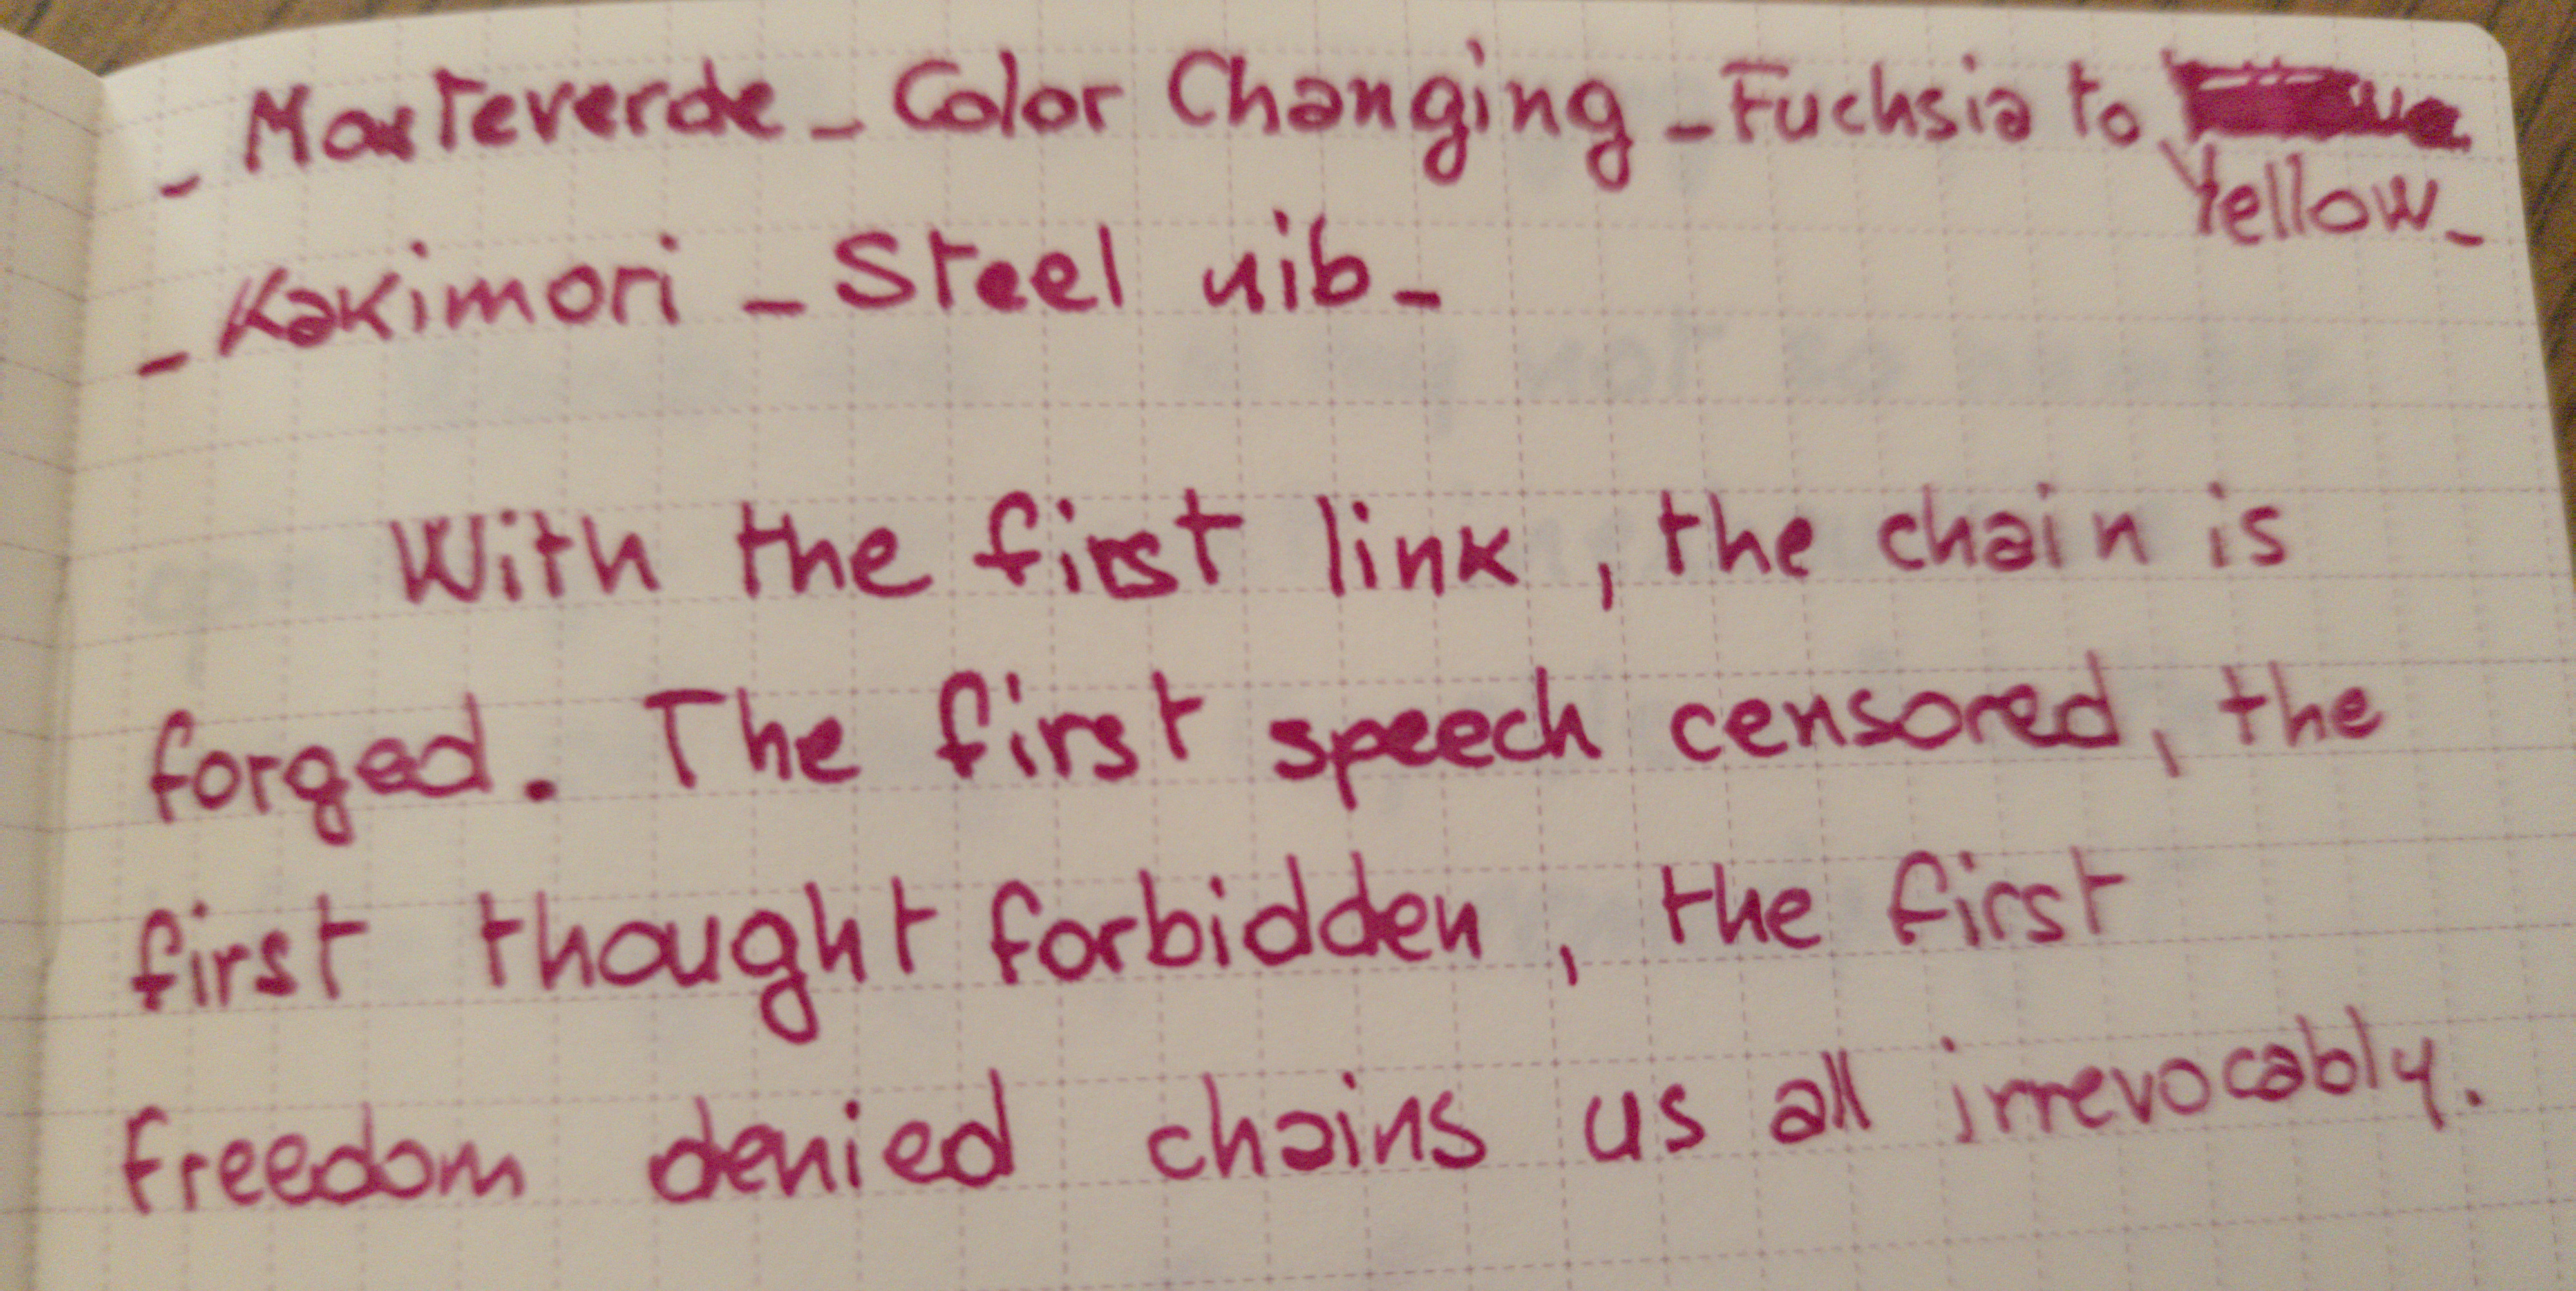 _ Monteverde _ Color Changing _ Fuchsia to
Yellow _
_ Kakimori _ Steel nib _
With the first link, the chain is
forged. The first speech censored, the
first thought forbidden, the first
freedom denied chains us all irrevocably.